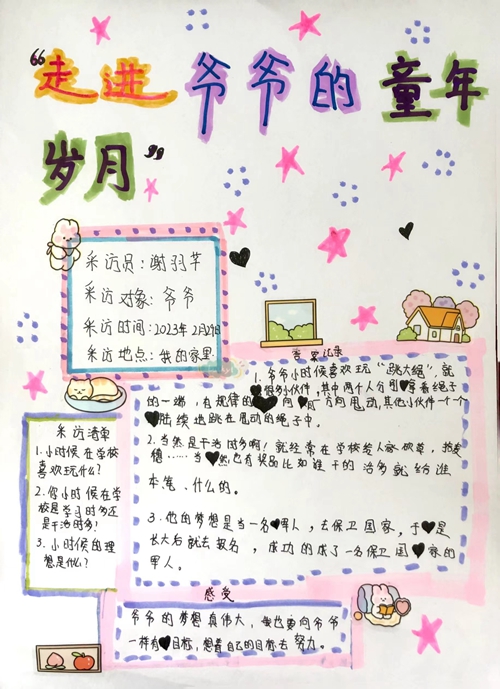 “走进 爷爷的 童年
岁月”
采访员：谢羽芊
采访对象：爷爷
采访时间：2023年2月27日
采访地点：我的家里
采访清单
1.小时候在学校
喜欢玩什么？
2.你小时候在学
校是学习时多还
是干活时多？
3.小时候的理
想是什么？
记录
1.爷爷小时候喜欢玩“跳大绳”，就
是很多小伙伴，其中两个人分别拿着绳子
的一端，有规律的向方向甩动，其他小伙伴一个一个
陆续进跳在甩动的绳子中。
2.当然是干活时多啊！就经常在学校
……当然也有奖品比如谁干的活多就给谁
本、笔、什么的。
3.他的梦想是当一名军人，去保卫国家，于是
长大后就去报名，成功的成了一名保卫国家的
军人。
感受
爷爷的梦想真伟大，我也要向爷爷
一样有目标，想着自己的目标去努力。